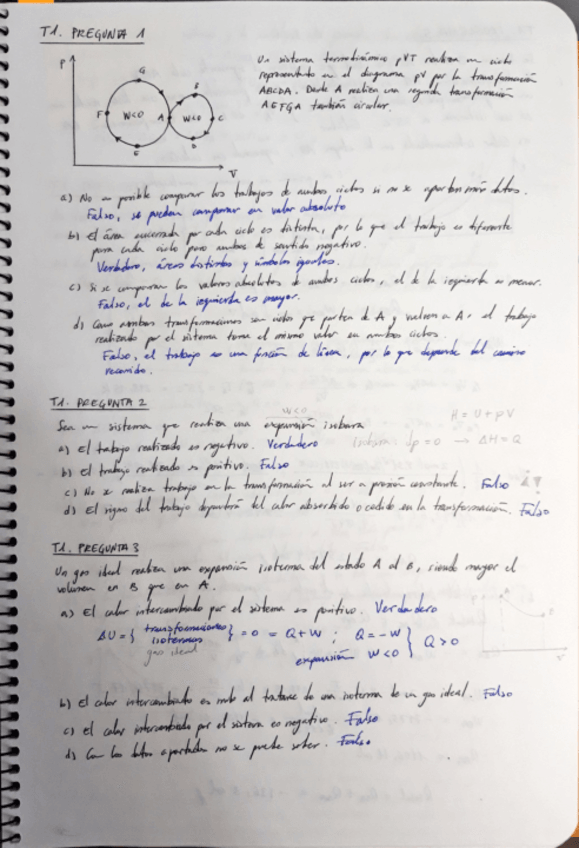 T1. PREGUNTA 1
P
G
B
F
W<0
A
W<0
C
E
D
V
Un sistema termodinámico pVT realiza un ciclo
representado en el diagrama pV por la transformación
ABCDA. Desde A realiza una segunda transformación
AEFGA también circular.
a) No es posible comparar los trabajos de ambos ciclos si no se aportan más datos.
Falso, se pueden comparar en valor absoluto
b) El área encerrada por cada ciclo es distinta, por lo que el trabajo es diferente
para cada ciclo pero ambos de sentido negativo.
Verdadero, áreas distintas y símbolos iguales.
c) Si se comparan los valores absolutos de ambos ciclos, el de la izquierda es menor.
Falso, el de la izquierda es mayor.
d) Como ambas transformaciones son ciclos que parten de A y vuelven a A, el trabajo
realizado por el sistema toma el mismo valor en ambos ciclos.
Falso, el trabajo es una función de línea, por lo que depende del camino
recorrido.
T1. PREGUNTA 2
W<0
H = U + pV
Sea un sistema que realiza una expansión isobara
a) El trabajo realizado es negativo. Verdadero
isobara: dp = 0 → ΔH = Q
b) El trabajo realizado es positivo. Falso
c) No se realiza trabajo en la transformación al ser a presión constante. Falso
d) El signo del trabajo dependerá del calor absorbido o cedido en la transformación. Falso
T1. PREGUNTA 3
Un gas ideal realiza una expansión isoterma del estado A al B, siendo mayor el
volumen en B que en A.
a) El calor intercambiado por el sistema es positivo. Verdadero
ΔU = { transformaciones isotermas gas ideal } = 0 = Q + W ; Q = -W
expansión W<0 } Q > 0
b) El calor intercambiado es nulo al tratarse de una isoterma de un gas ideal. Falso
c) El calor intercambiado por el sistema es negativo. Falso
d) Con los datos aportados no se puede saber. Falso